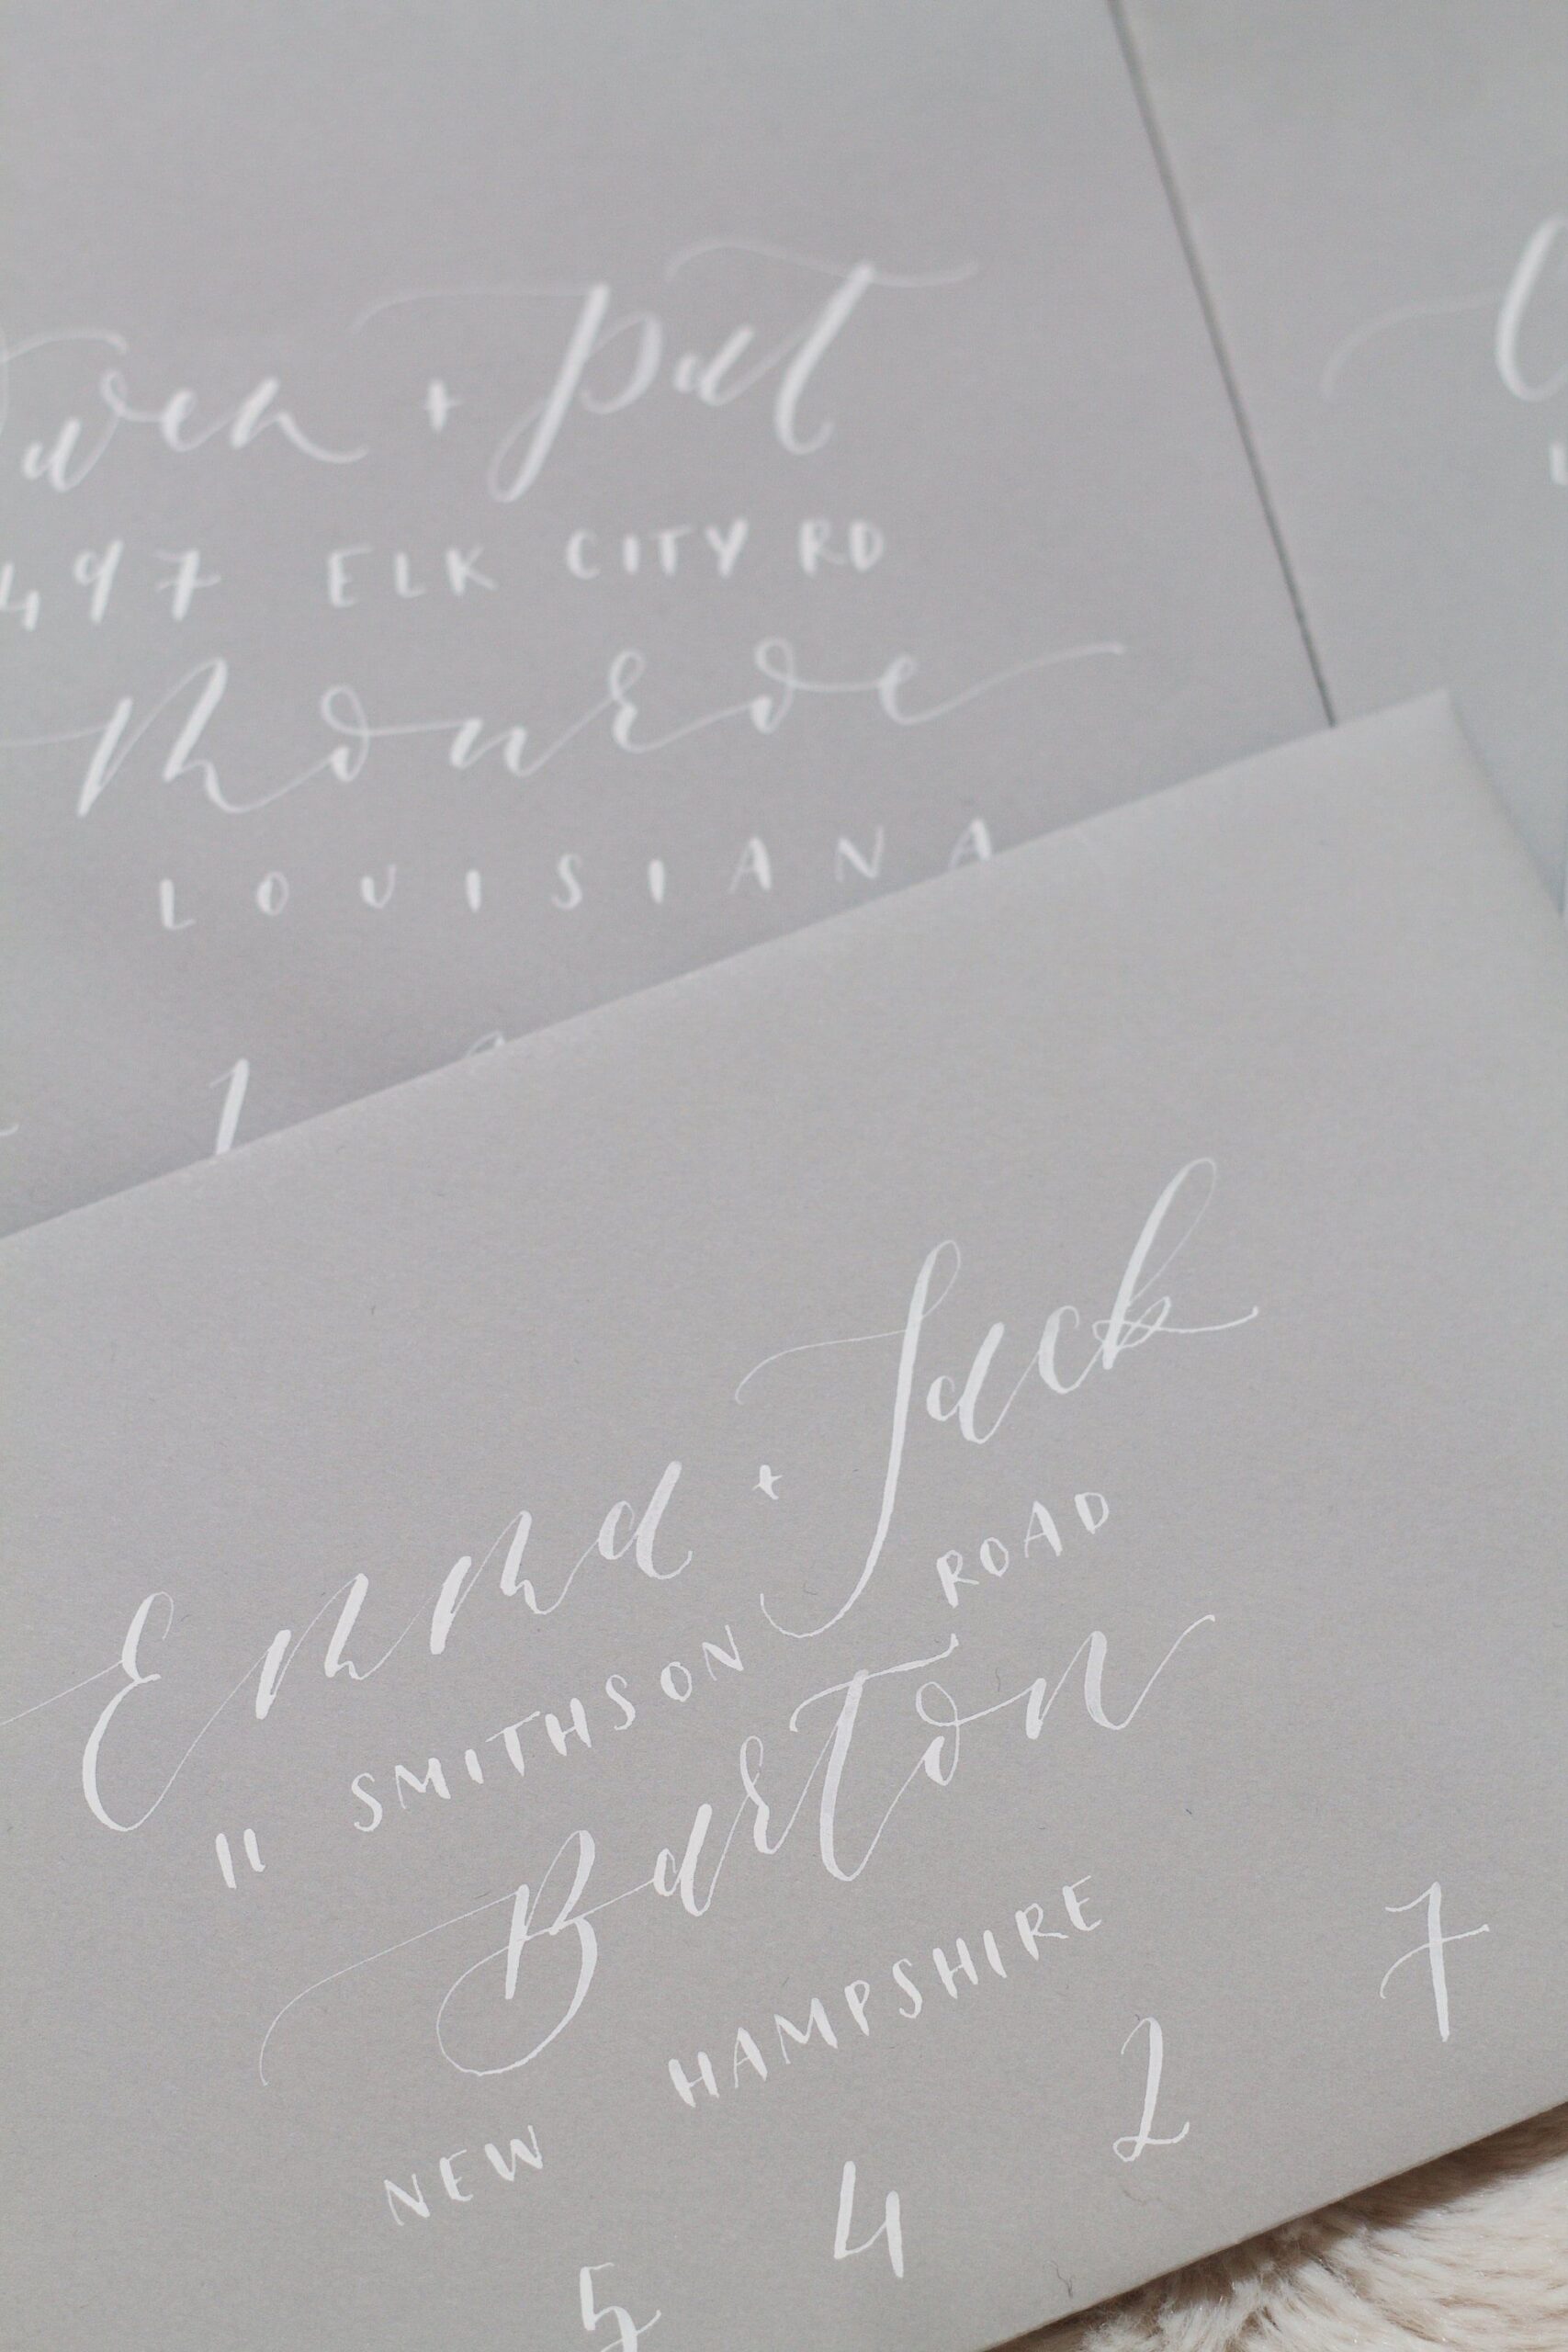 + Pat
497 ELK CITY RD
Monroe
LOUISIANA
1
Emma + Jack
11 SMITHSON ROAD
Barton
NEW HAMPSHIRE
5 4 2 7